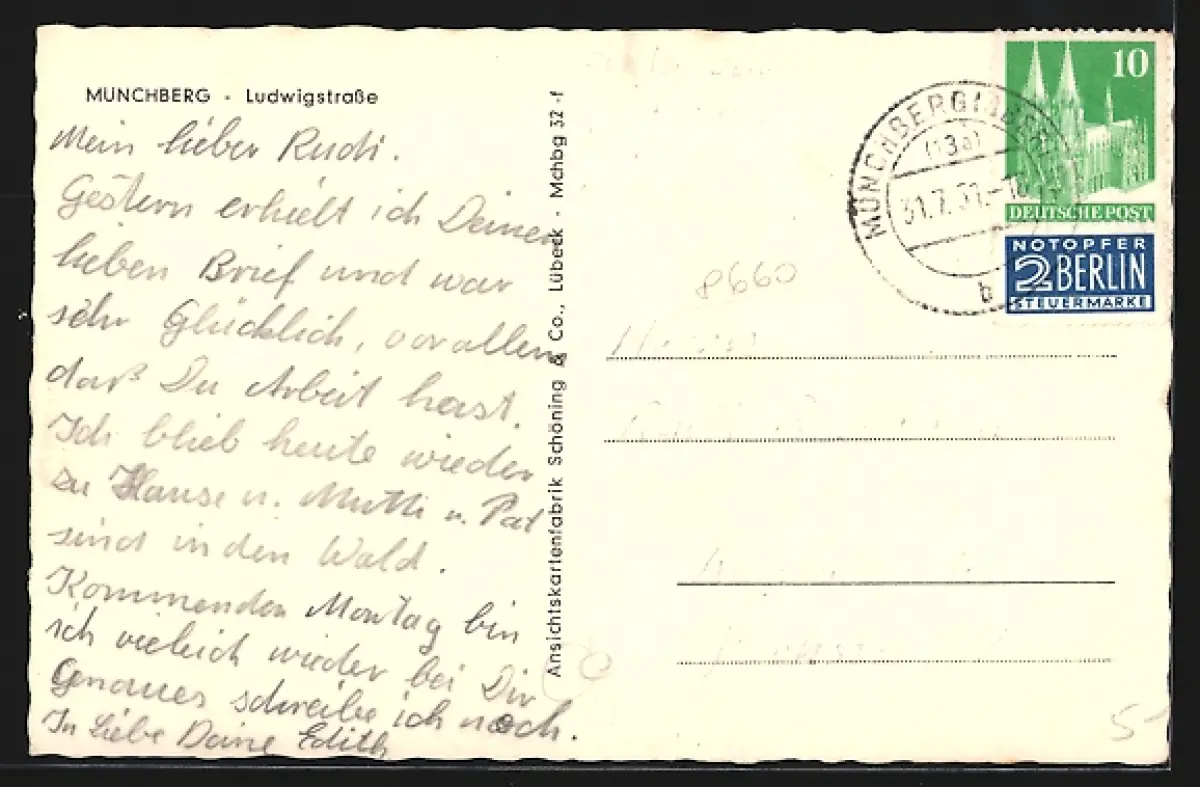 MÜNCHBERG - Ludwigstraße
Mein lieber Rudi.
Gestern erhielt ich Deinen
lieben Brief und war
sehr Glücklich, vorallen
daß Du Arbeit hast.
Ich blieb heute wieder
zu Hause u. Mutti u. Pat
sind in den Wald.
Kommenden Montag bin
ich vieleich wieder bei Dir
Genaues schreibe ich noch.
In Liebe Deine Edith
Ansichtskartenfabrik Schöning & Co., Lübeck · Mchbg 32 -f
10
DEUTSCHE POST
NOTOPFER
2 BERLIN
STEUERMARKE
MÜNCHBERG
(13a)
31.7.51
b
8660
5